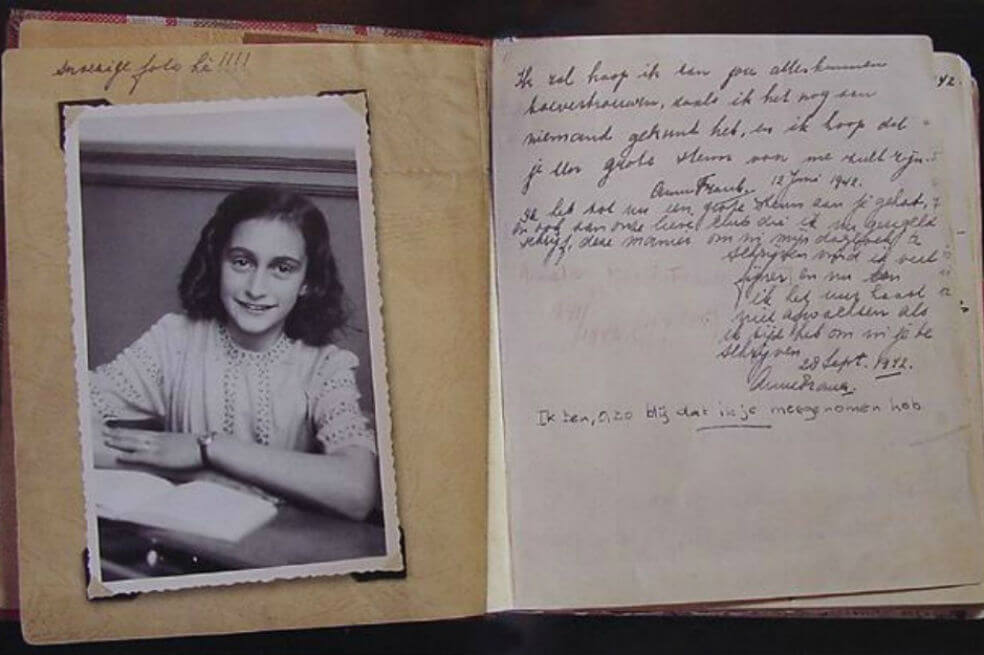 foto hè!!!!
Ik zal hoop ik aan jou alles kunnen
toevertrouwen, zoals ik het nog aan
niemand gekund heb, en ik hoop dat
je een grote steun van me zult zijn.
Anne Frank. 12 Juni 1942.
Ik heb tot nu een grote steun aan je gehad,
en ook aan onze lieve club die ik nu geregeld
schrijf, deze manier om in mijn dagboek te
schrijven vind ik veel
fijner en nu kan
ik het uur haast
niet afwachten als
ik tijd heb om in je te
schrijven
28 Sept. 1942.
Anne Frank.
Ik ben, O, zo blij dat ik je meegenomen heb
42.